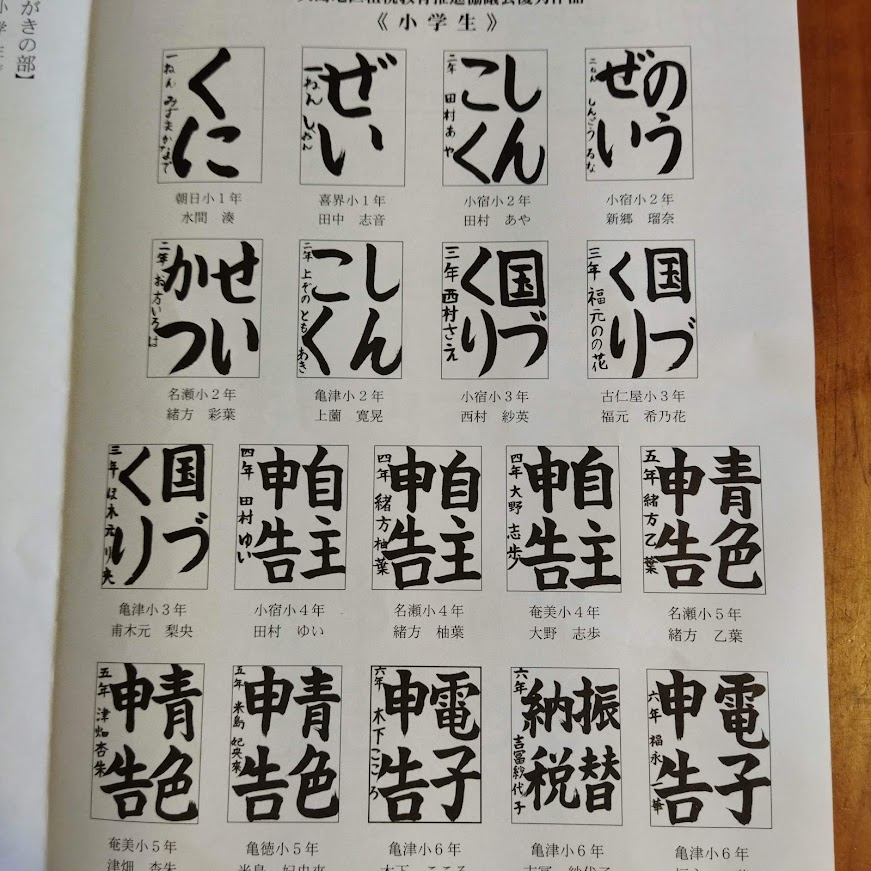 《小学生》
くに
一ねん みずまかなで
朝日小1年
水間 湊
ぜい
一ねん しおん
喜界小1年
田中 志音
しんこく
二年 田村あや
小宿小2年
田村 あや
のうぜい
二ねん しんごうるな
小宿小2年
新郷 瑠奈
せいかつ
二年 お方いろは
名瀬小2年
緒方 彩葉
しんこく
二年 上ぞのともあき
亀津小2年
上薗 寛晃
国づくり
三年 西村さえ
小宿小3年
西村 紗英
国づくり
三年 福元のの花
古仁屋小3年
福元 希乃花
国づくり
三年
亀津小3年
甫木元 梨央
自主申告
四年 田村ゆい
小宿小4年
田村 ゆい
自主申告
四年 緒方柚葉
名瀬小4年
緒方 柚葉
自主申告
四年 大野志歩
奄美小4年
大野 志歩
青色申告
五年 緒方乙葉
名瀬小5年
緒方 乙葉
青色申告
五年 津畑杏朱
奄美小5年
津畑 杏朱
青色申告
五年 米島妃央來
亀徳小5年
米島 妃央來
電子申告
六年 木下こころ
亀津小6年
木下 こころ
振替納税
六年 吉冨紗代子
亀津小6年
吉冨 紗代子
電子申告
六年 福永一華
亀津小6年
がきの部】